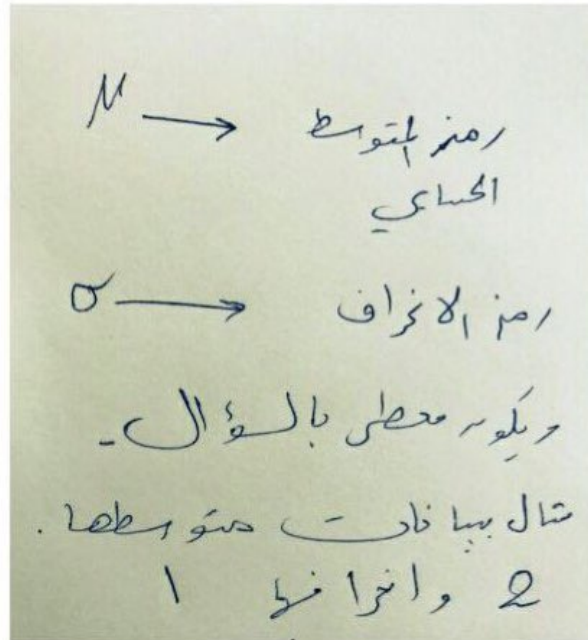 μ → رمز المتوسط
الحسابي
σ → رمز الانحراف
ويكون معطى بالسؤال -
مثال بيانات متوسطها .
2 وانحرافها 1